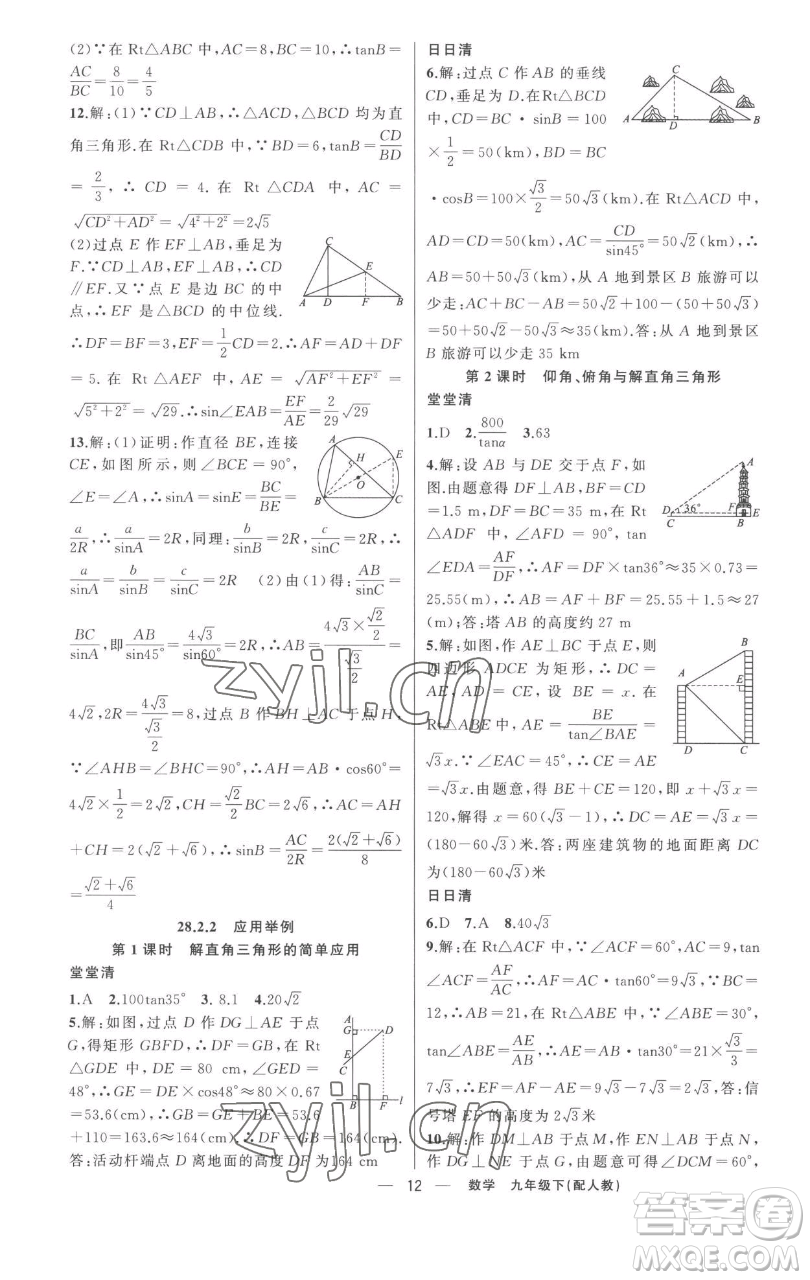 (2)∵在 Rt△ABC 中,AC=8,BC=10,∴tanB=
AC/BC=8/10=4/5
12.解:(1)∵CD⊥AB,∴△ACD,△BCD 均为直
角三角形.在 Rt△CDB 中,∵BD=6,tanB=CD/BD
=2/3,∴CD=4.在 Rt△CDA 中,AC=
√(CD²+AD²)=√(4²+2²)=2√5
(2)过点 E 作 EF⊥AB,垂足为
F.∵CD⊥AB,EF⊥AB,∴CD
∥EF.又∵点 E 是边 BC 的中
点,∴EF 是△BCD 的中位线.
∴DF=BF=3,EF=1/2CD=2.∴AF=AD+DF
=5.在 Rt△AEF 中,AE=√(AF²+EF²)=
√(5²+2²)=√29.∴sin∠EAB=EF/AE=2/29√29
C
E
A D F B
13.解:(1)证明:作直径 BE,连接
CE,如图所示,则∠BCE=90°,
∠E=∠A,∴sinA=sinE=BC/BE=
a/2R,∴a/sinA=2R,同理:b/sinB=2R,c/sinC=2R,∴
a/sinA=b/sinB=c/sinC=2R (2)由(1)得:AB/sinC=
BC/sinA,即AB/sin45°=4√3/sin60°=2R,∴AB=(4√3×√2/2)/(√3/2)=
4√2,2R=4√3/(√3/2)=8,过点 B 作 BH⊥AC 于点 H,
∵∠AHB=∠BHC=90°,∴AH=AB·cos60°=
4√2×1/2=2√2,CH=√2/2BC=2√6,∴AC=AH
+CH=2(√2+√6),∴sinB=AC/2R=2(√2+√6)/8
=(√2+√6)/4
A
H E
O
B C
28.2.2 应用举例
第 1 课时 解直角三角形的简单应用
堂堂清
1.A 2.100tan35° 3.8.1 4.20√2
5.解:如图,过点 D 作 DG⊥AE 于点
G,得矩形 GBFD,∴DF=GB,在 Rt
△GDE 中,DE=80 cm,∠GED=
48°,∴GE=DE×cos48°≈80×0.67
=53.6(cm),∴GB=GE+BE=53.6
+110=163.6≈164(cm),∴DF=GB=164(cm).
答:活动杆端点 D 离地面的高度 DF 为 164 cm
A
G D
E
C
B F l
日日清
6.解:过点 C 作 AB 的垂线
CD,垂足为 D.在Rt△BCD
中,CD=BC·sinB=100
×1/2=50(km),BD=BC
·cosB=100×√3/2=50√3(km).在 Rt△ACD 中,
AD=CD=50(km),AC=CD/sin45°=50√2(km),∴
AB=50+50√3(km).∴从 A 地到景区 B 旅游可以
少走:AC+BC-AB=50√2+100-(50+50√3)
=50+50√2-50√3≈35(km).答:从 A 地到景区
B 旅游可以少走 35 km
C
A D B
第 2 课时 仰角、俯角与解直角三角形
堂堂清
1.D 2.800/tanα 3.63
4.解:设 AB 与 DE 交于点 F,如
图.由题意得 DF⊥AB,BF=CD
=1.5 m,DF=BC=35 m,在 Rt
△ADF 中,∠AFD=90°,tan
∠EDA=AF/DF,∴AF=DF×tan36°≈35×0.73=
25.55(m),∴AB=AF+BF=25.55+1.5≈27
(m);答:塔 AB 的高度约 27 m
A
D 36° F E
C B
5.解:如图,作 AE⊥BC 于点 E,则
四边形 ADCE 为矩形,∴DC=
AE,AD=CE,设 BE=x.在
Rt△ABE 中,AE=BE/tan∠BAE=
√3x.∵∠EAC=45°,∴CE=AE
=√3x.由题意,得 BE+CE=120,即 x+√3x=
120,解得 x=60(√3-1),∴DC=AE=√3x=
(180-60√3)米,答:两座建筑物的地面距离 DC
为(180-60√3)米
B
A E
D C
日日清
6.D 7.A 8.40√3
9.解:在 Rt△ACF 中,∵∠ACF=60°,AC=9,tan
∠ACF=AF/AC,∴AF=AC·tan60°=9√3,∵BC=
12,∴AB=21,在 Rt△ABE 中,∵∠ABE=30°,
tan∠ABE=AE/AB,∴AE=AB·tan30°=21×√3/3=
7√3,∴EF=AF-AE=9√3-7√3=2√3,答:信
号塔 EF 的高度为 2√3米
10.解:作 DM⊥AB 于点 M,作 EN⊥AB 于点
N,作 DG⊥NE,交 NE 的延长线于点 G,在 Rt
— 12 — 数学 九年级下(配人教)
zyjl.cn
zyjl.cn
答案圈
MXQE.COM